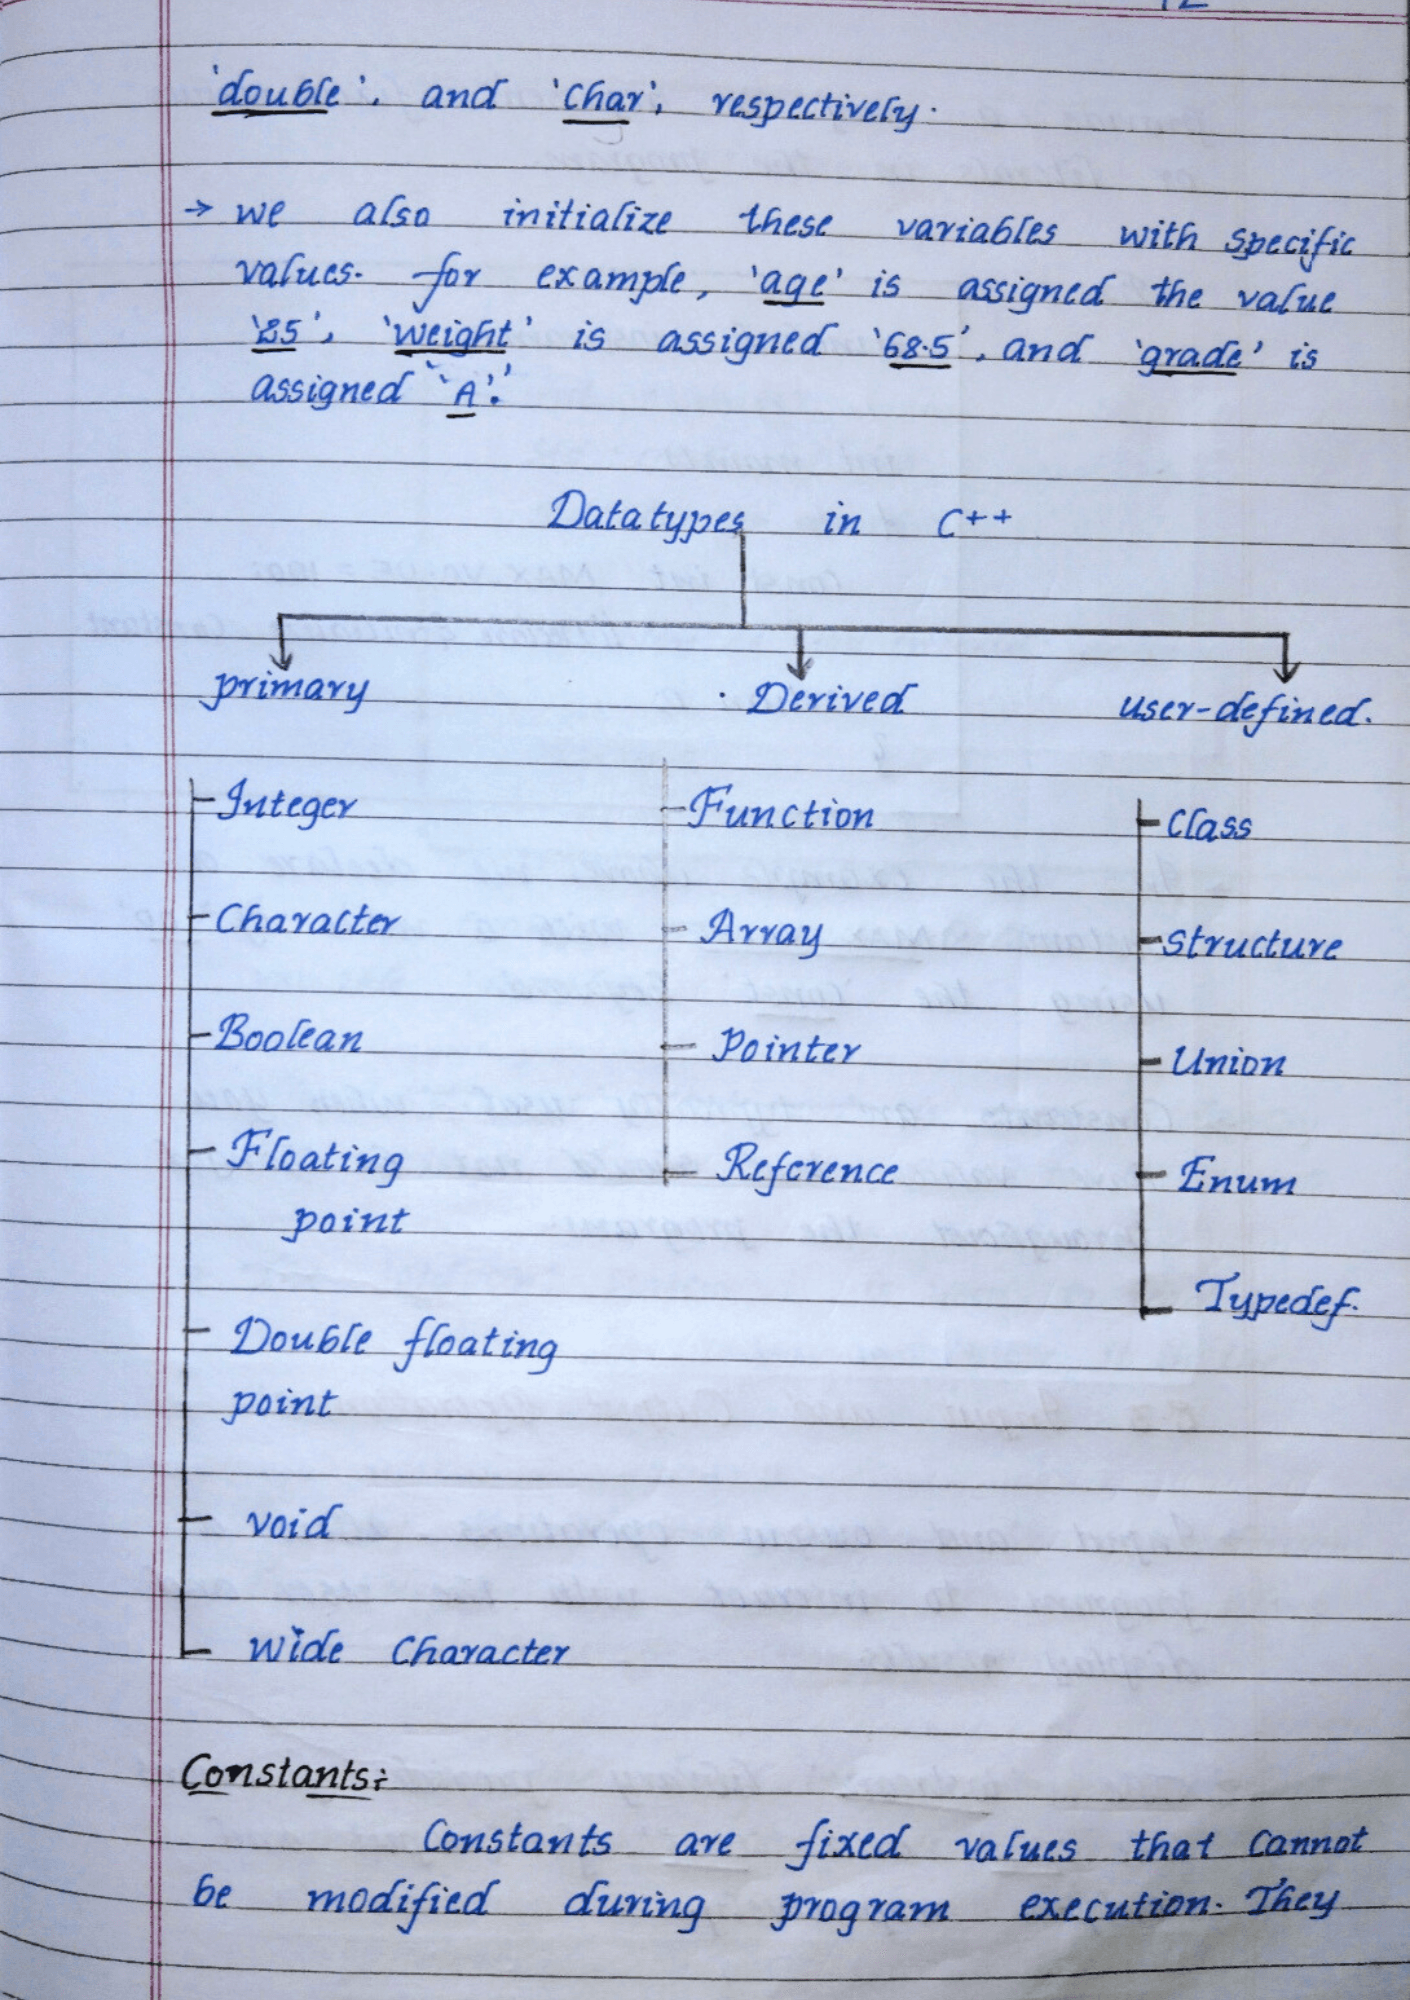 'double', and 'Char', respectively.
→ we also initialize these variables with specific
values. for example, 'age' is assigned the value
'25', 'weight' is assigned '68.5', and 'grade' is
assigned ''A'.'
Datatypes in C++
primary Derived user-defined.
Integer Function Class
Character Array Structure
Boolean Pointer Union
Floating Reference Enum
point
Typedef.
Double floating
point
void
Wide Character
Constants:
Constants are fixed values that cannot
be modified during program execution. They